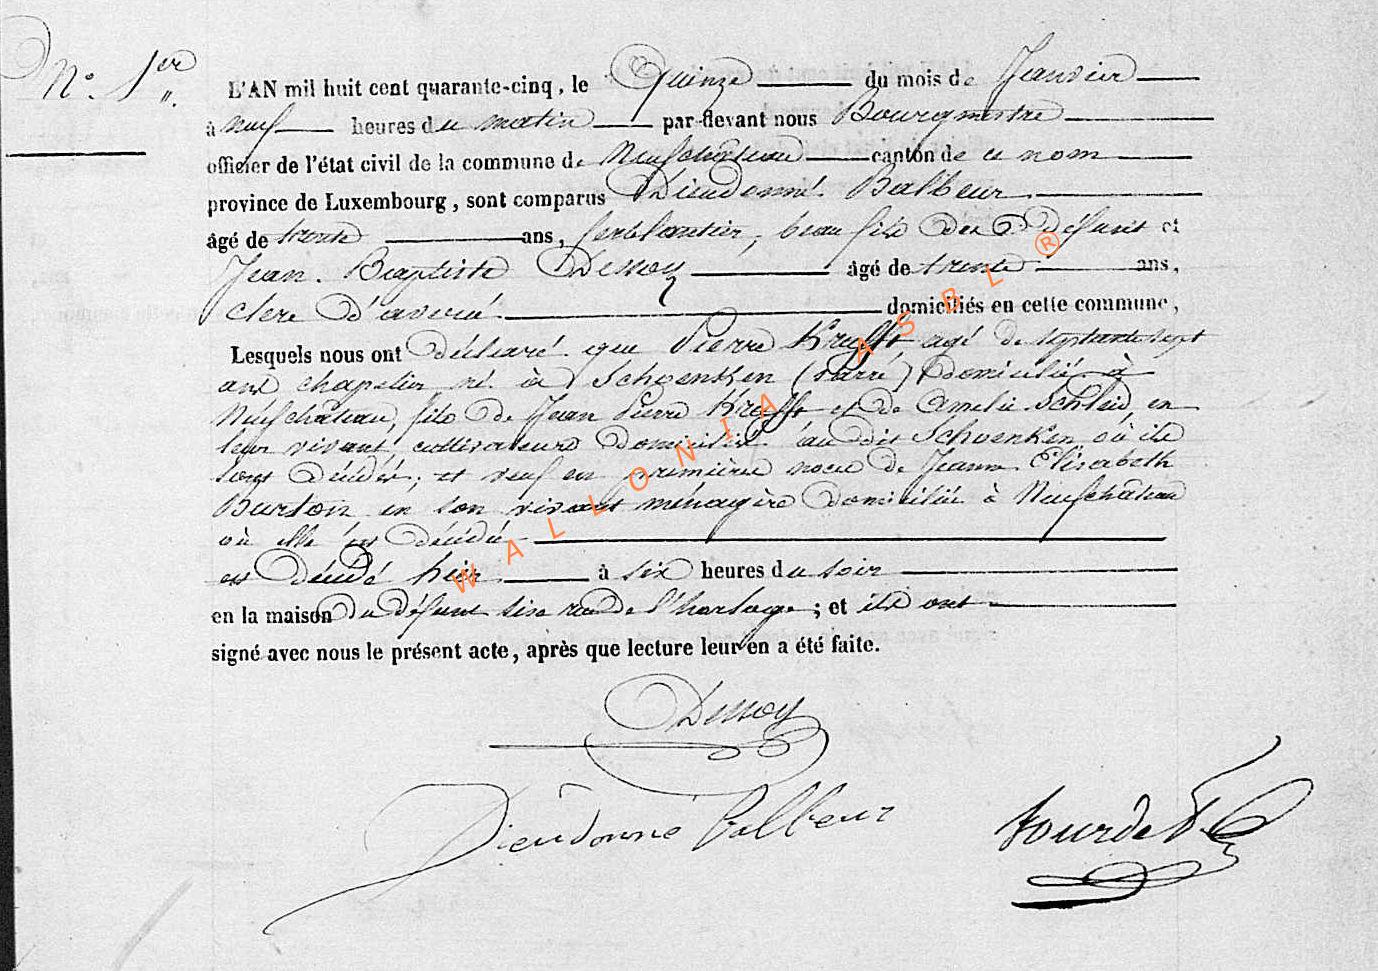 N.° 1er
L'AN mil huit cent quarante-cinq, le Quinze du mois de Janvier
à neuf heures du matin par-devant nous Bourgmestre
officier de l'état civil de la commune de Neufchâteau canton de ce nom
province de Luxembourg, sont comparus Dieudonné Balbeur
âgé de trente ans, ferblantier, beau fils du défunt et
Jean Baptiste Dessoy âgé de trente ans,
clerc d'avoué domiciliés en cette commune,
Lesquels nous ont déclaré que Pierre Krefft agé de septante sept
ans chapelier né à Schoenken (Parré) domicilié à
Neufchâteau, fils de Jean Pierre Krefft et de Amelie Schleid, en
leur vivant cultivateurs domiciliés au dit Schoenken où ils
sont décédés; et veuf en première noce de Jeanne Elisabeth
Burton en son vivant ménagère domiciliée à Neufchâteau
où elle est décédée
est décédé hier à six heures du soir
en la maison du défunt sise rue de l'horloge; et ils ont
signé avec nous le présent acte, après que lecture leur en a été faite.
Dessoy
Dieudonné Balbeur
WALLONIA ASBL ®